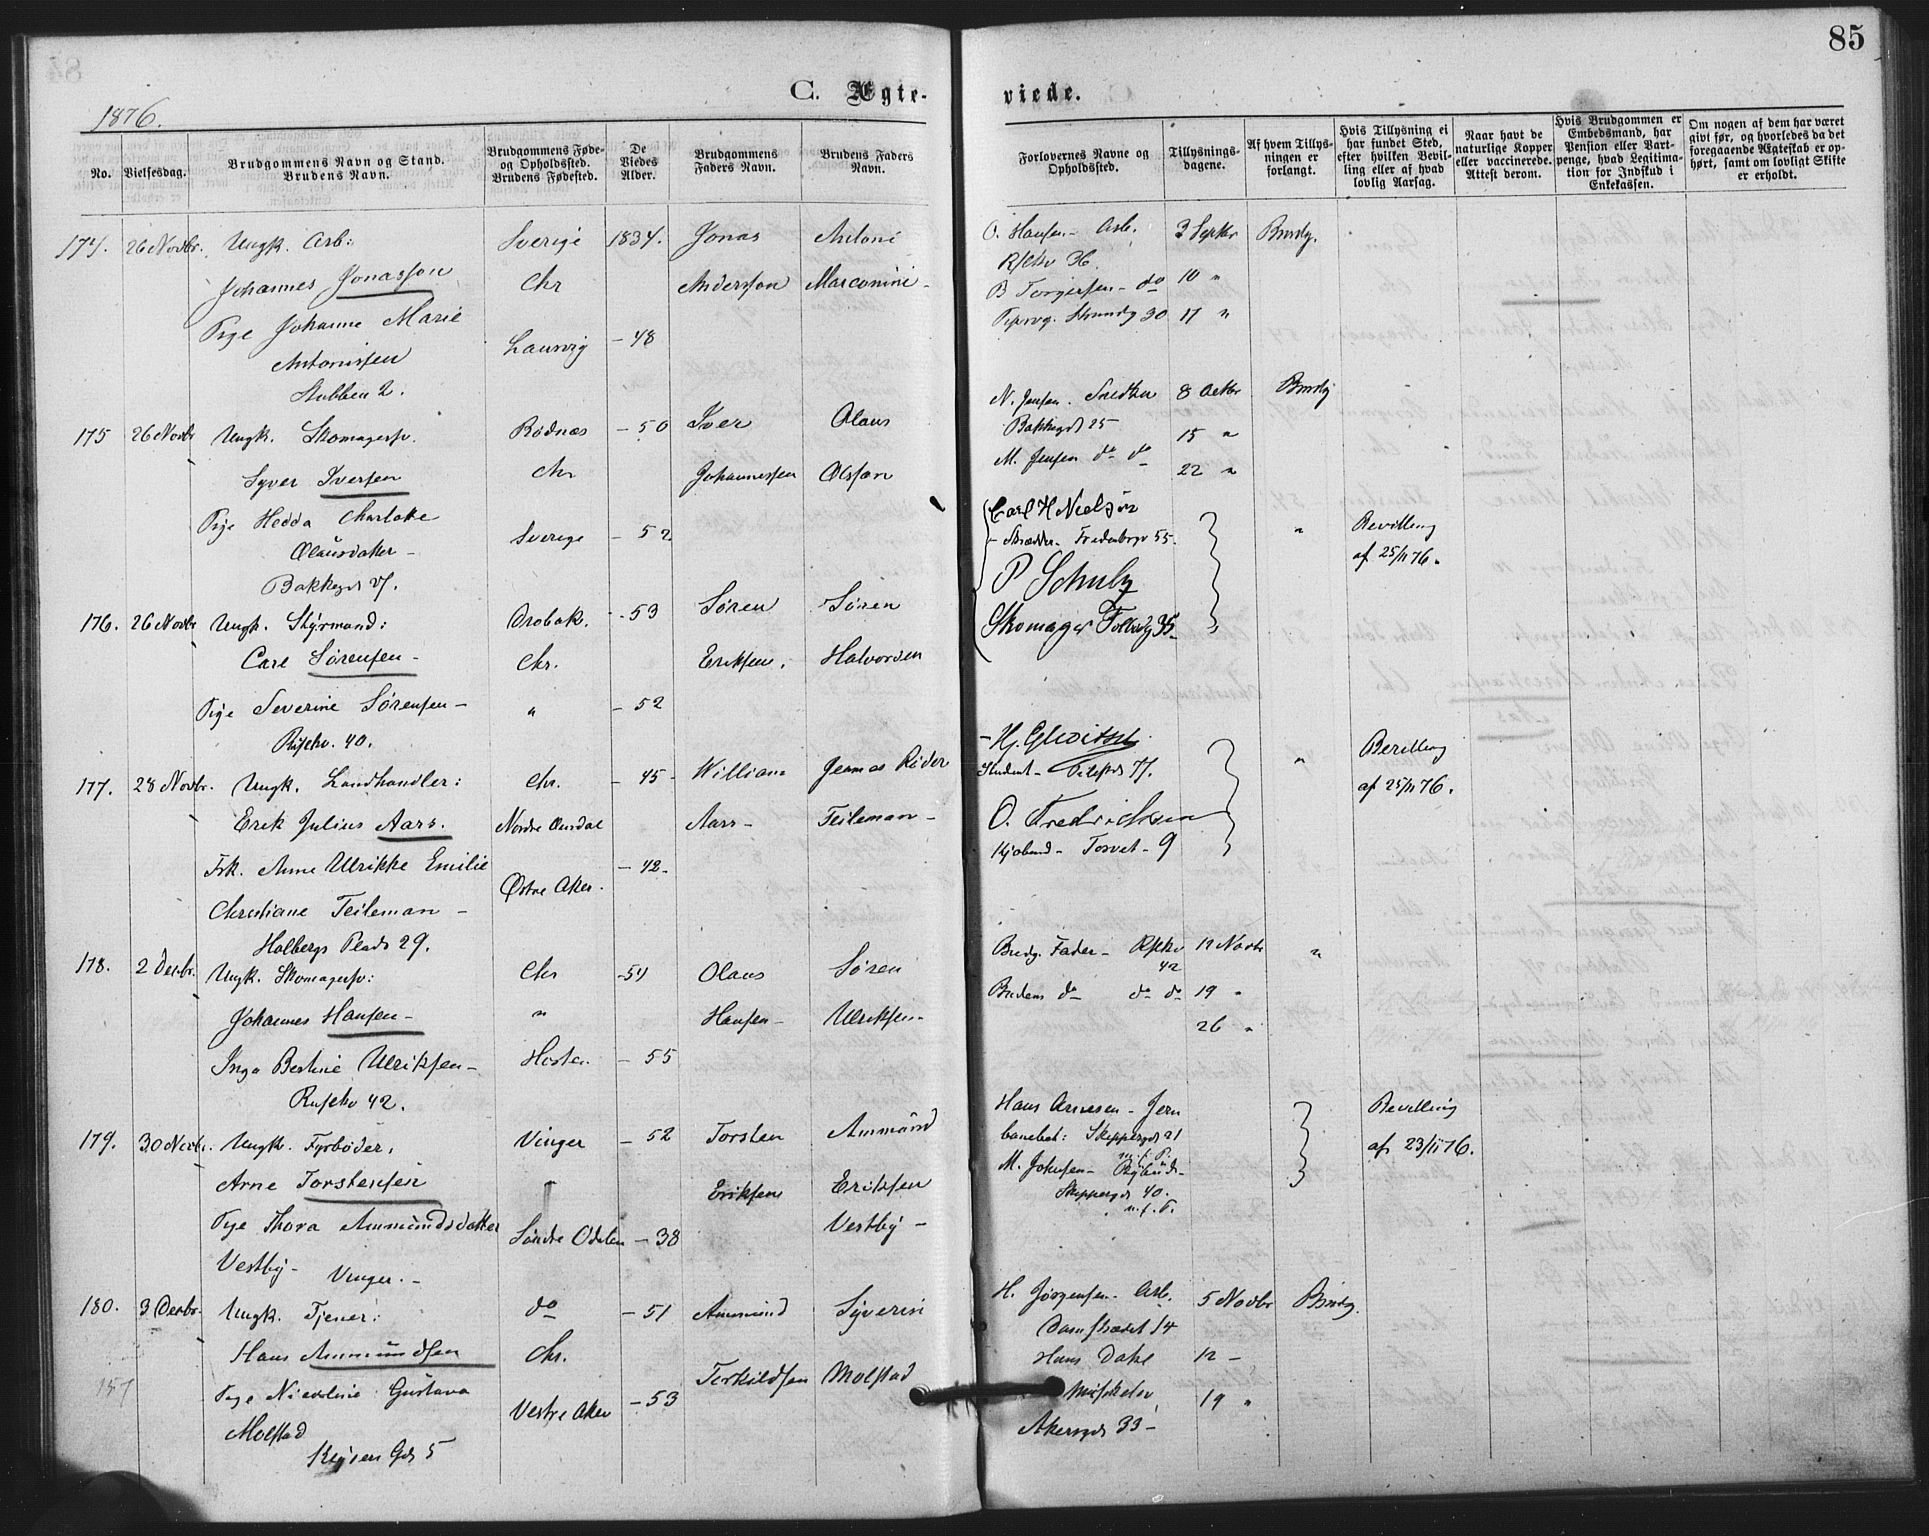 85
C. Ægte-
viede.
1876.
No.
Vielsesdag.
Brudgommens Navn og Stand.
Brudens Navn.
Brudgommens Føde-
og Opholdssted.
Brudens Fødested.
De
Viedes
Alder.
Brudgommens
Faders Navn.
Brudens Faders
Navn.
Forlovernes Navne og
Opholdssted.
Tillysnings-
dagene.
Af hvem Tillys-
ningen er
forlangt.
Hvis Tillysning ei
har fundet Sted,
efter hvilken Bevil-
ling eller af hvad
lovlig Aarsag.
Naar havt de
naturlige Kopper
eller vaccinerede.
Attest derom.
Hvis Brudgommen er
Embedsmand, har
Pension eller Vart-
penge, hvad Legitima-
tion for Indskud i
Enkekassen.
Om nogen af dem har været
givt før, og hvorledes da det
foregaaende Ægteskab er op-
hørt, samt om lovligt Skifte
er erholdt.
174. 26 Novbr. Ungk. Arb: Sverige 1834. Jonas Antoni
O. Hansen - Arb. 3 Septbr Brudg.
Johannes Jonasson Chr Andersson Marconini -
B Torgersen - do 10 "
Pige Johanne Marie Laurvig - 48
30 17 "
Antonisen
Stubben 2.
175 26 Novbr Ungk. Skomagersv. Rødnæs - 50 Iver Olaus
N. Jensen. Snedker 8 Octbr Brudg
Bakkegd 25 15 "
Syver Iversen Chr Johannessen Olsson
M. Jensen do do 22 "
Pige Hedda Charlotte Sverige - 52
Olausdatter -
Bakkegd 27.
Carl H Nielsen
- Skrædder - Fredensbgv 55. " Bevilling
af 25/11 76.
P Schulz
Skomager Tolbodg 35
176. 26 Novbr Ungk. Styrmand: Drøbak. - 53 Søren Søren
Carl Sørensen - Chr. Eriksen. Halvorsen
Pige Severine Sørensen - " - 52
Rifslkv. 40.
177. 28 Novbr. Ungk. Landhandler: Chr. - 45 - William Jesmas Røder
Student - Pilestd 77. " Bevilling
af 25/11 76.
Erik Julius Aars. Nordre Aurdal Aars - Teileman -
O. Fredriksen
Kjøbmd - Torvet - 9
Frk. Anne Ulrikke Emilie Østre Aker. - 42 -
Christiane Teileman -
Holbergs Plads 29.
178. 2 Decbr. Ungk. Skomagersv: Chr - 54 Olaus Søren
Brudg. Fader - Rfslkv 12 Novbr "
42
Brudens do do do 19 "
26 "
Johannes Hansen - " Hansen - Ulriksen -
Inga Bertine Ulriksen - Holter - 55
Rufslkv 42.
179. 30 Novbr. Ungk. Fyrbøder. Vinger - 52 Torsten Ammund
Hans Arnesen - Jern Bevilling
banebet: Skippergd 21
af 23/11 76.
Arne Torstensen " Eriksen Eriksen
Vestby -
M. Johnsen -
Skippergd 40.
Pige Thora Ammundsdatter Søndre Odalen - 38
Vestby - Vinger. -
180. 3 Decbr. Ungk. Tjener: do - 51 Ammund Syverin
H. Jørgensen - Arb. 5 Novbr Brudg.
Damstrædet 14
Hans Ammundsen Chr. Terkildsen Molstad
Hans Dahl 12 -
19 "
Akersgd 33 -
157
Pige Nicoline Gustava Vestre Aker - 53
Molstad
Gd 5